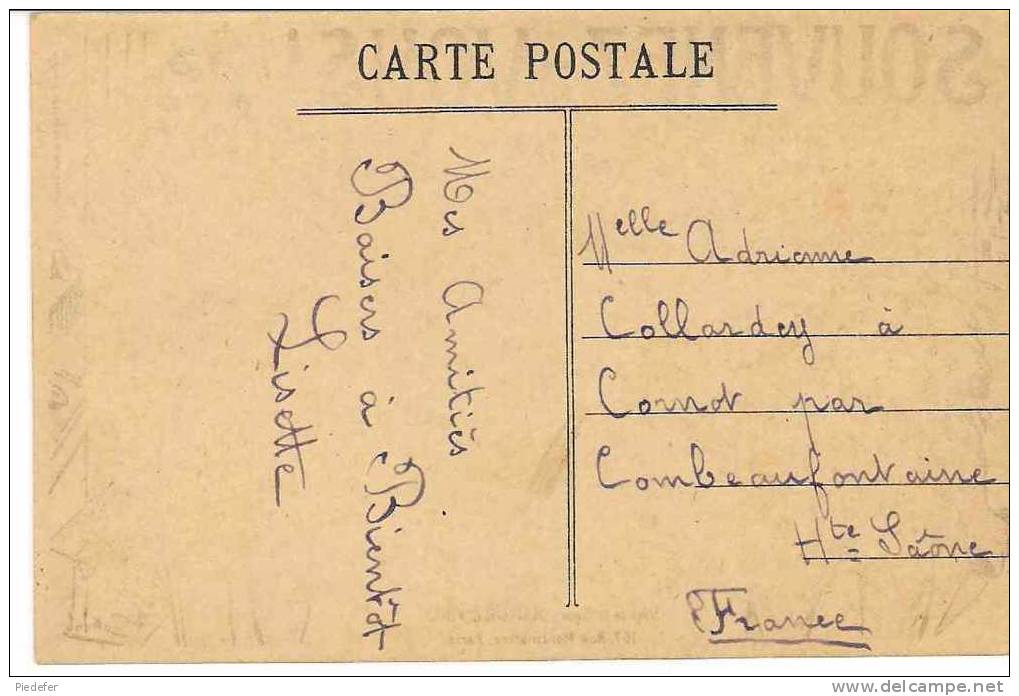 CARTE POSTALE
Mes Amitiès
Baisers à Bientôt
Lisette
Melle Adrianne
Collardey à
Cornot par
Combeaufontaine
Hte Saône
France
Piedefer
www.delcampe.net